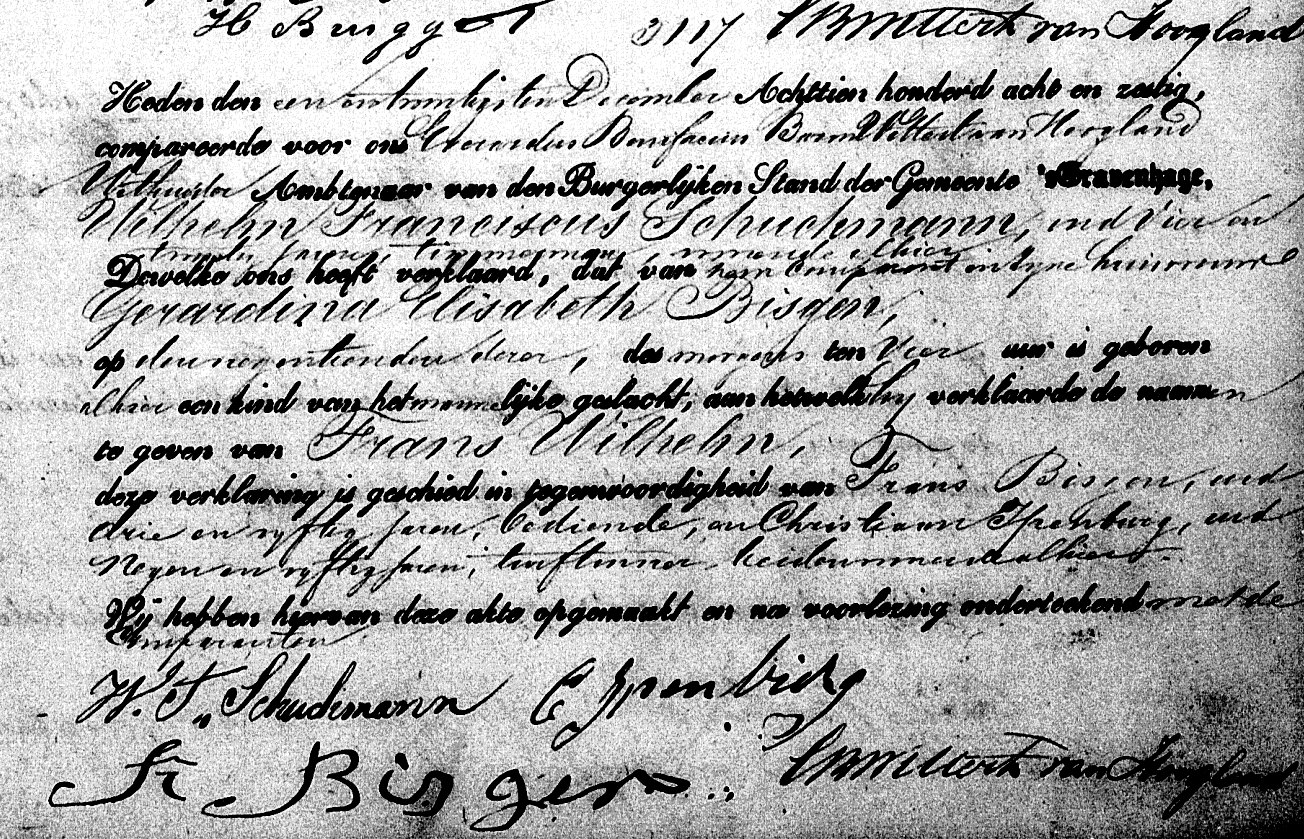 H Brugge 3117 van Hoogland
Heden den een en twintigsten December Achttien honderd acht en zestig,
compareerde voor ons Everardus Bonifacius Baron Wittert van Hoogland
Wethouder Ambtenaar van den Burgerlijken Stand der Gemeente 's Gravenhage,
Wilhelm Franciscus Schuchmann, oud Vier en
twintig jaren, timmerman, wonende alhier
Dewelke ons heeft verklaard, dat van hem Comparant en zyne huisvrouw
Gerardina Elisabeth Bisgen,
op den negentienden dezer, des morgens ten Vier uur is geboren
alhier een kind van het mannelijke geslacht, aan hetwelk hy verklaarde de naamen
te geven van Frans Wilhelm,
deze verklaring is geschied in tegenwoordigheid van Frans Bisgen, oud
drie en vyftig jaren, bediende, en Christiaan Ypenburg, oud
Negen en vyftig jaren, turftonner beiden wonende alhier.
Wij hebben hiervan deze akte opgemaakt en na voorlezing onderteekend met de
Comparanten
W. F. Schuchmann C Ypenburg
Fr Bisgen Wittert van Hoogland